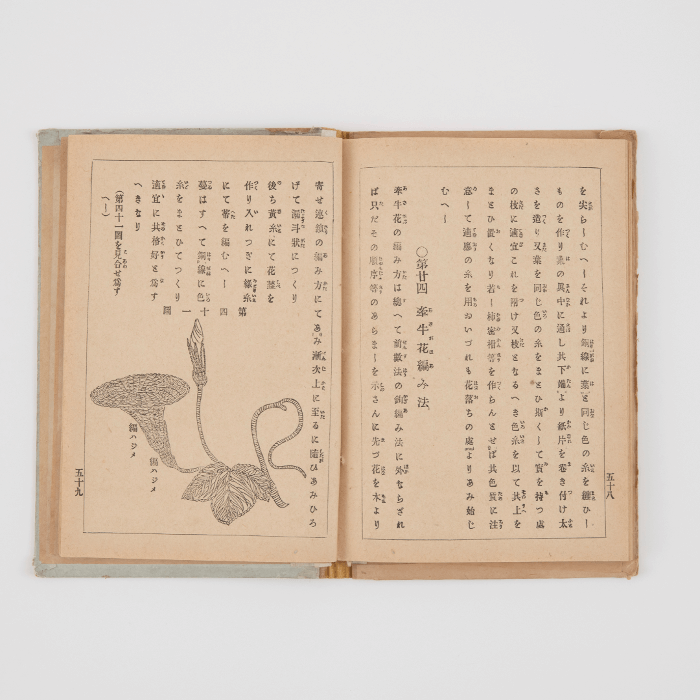 を尖らしむへしそれより銅線に葉と同じ色の糸を纏ひし
ものを作り葉の眞中に通し其下端より紙片を卷き付け太
さを造り又葉を同じ色の糸をまとひ斯くして實を持つ處
の枝に適宜これを附け又枝となるへき色糸を以て其上を
まとひ置くなり若し柿蜜柑等を作らんとせば其色質に注
意して適應の糸を用ゐいづれも花落ちの處よりあみ始し
むへし
○第廿四 牽牛花編み法
牽牛花の編み方は總へて前數法の編み法に外ならざれ
ば只だその順序等のあらましを示さんに先づ花を本より
五十八
寄せ逆繰の編み方にてあみ漸次上に至るに隨ひあみひろ
げて漏斗狀につくり
後ち黃糸にて花蘂を
作り入れつぎに綠糸
にて蕚を編むへし
蔓はすへて銅線に色
糸をまとひてつくり
適宜に其恰好を爲す
へきなり
(第四十一圖を見合せ爲す
へし)
第四十一圖
編ハジメ
編ハジメ
五十九